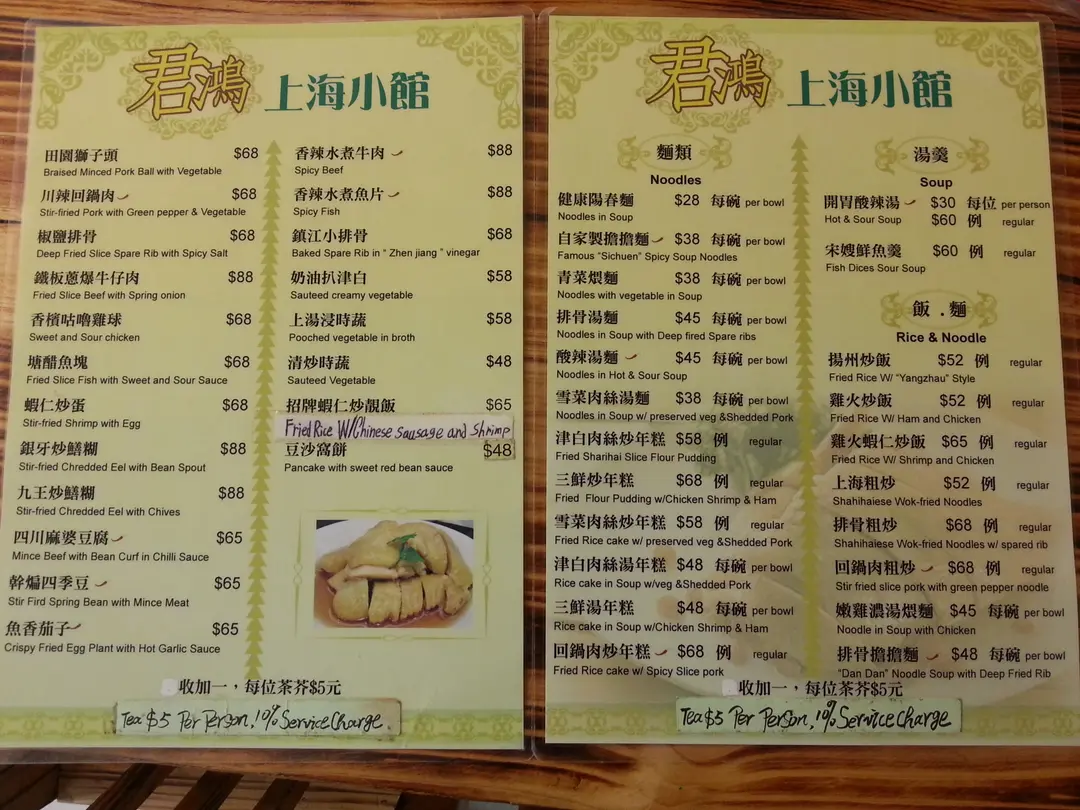 君鴻 上海小館
田園獅子頭 $68
Braised Minced Pork Ball with Vegetable
川辣回鍋肉 $68
Stir-fried Pork with Green pepper & Vegetable
椒鹽排骨 $68
Deep Fried Slice Spare Rib with Spicy Salt
鐵板蔥爆牛仔肉 $88
Fried Slice Beef with Spring onion
香檳咕嚕雞球 $68
Sweet and Sour chicken
塘醋魚塊 $68
Fried Slice Fish with Sweet and Sour Sauce
蝦仁炒蛋 $68
Stir-fried Shrimp with Egg
銀牙炒鱔糊 $88
Stir-fried Chredded Eel with Bean Spout
九王炒鱔糊 $88
Stir-fried Chredded Eel with Chives
四川麻婆豆腐 $65
Mince Beef with Bean Curf in Chilli Sauce
幹煸四季豆 $65
Stir Fird Spring Bean with Mince Meat
魚香茄子 $65
Crispy Fried Egg Plant with Hot Garlic Sauce
香辣水煮牛肉 $88
Spicy Beef
香辣水煮魚片 $88
Spicy Fish
鎮江小排骨 $68
Baked Spare Rib in " Zhen jiang " vinegar
奶油扒津白 $58
Sauteed creamy vegetable
上湯浸時蔬 $58
Pooched vegetable in broth
清炒時蔬 $48
Sauteed Vegetable
招牌蝦仁炒靚飯 $65
Fried Rice W/Chinese Sausage and Shrimp
豆沙窩餅 $48
Pancake with sweet red bean sauce
收加一，每位茶芥$5元
Tea $5 Per Person, 10% Service Charge.
君鴻 上海小館
麵類
Noodles
健康陽春麵 $28 每碗 per bowl
Noodles in Soup
自家製擔擔麵 $38 每碗 per bowl
Famous "Sichuen" Spicy Soup Noodles
青菜煨麵 $38 每碗 per bowl
Noodles with vegetable in Soup
排骨湯麵 $45 每碗 per bowl
Noodles in Soup with Deep fired Spare ribs
酸辣湯麵 $45 每碗 per bowl
Noodles in Hot & Sour Soup
雪菜肉絲湯麵 $38 每碗 per bowl
Noodles in Soup w/ preserved veg &Shedded Pork
津白肉絲炒年糕 $58 例 regular
Fried Sharihai Slice Flour Pudding
三鮮炒年糕 $68 例 regular
Fried Flour Pudding w/Chicken Shrimp & Ham
雪菜肉絲炒年糕 $58 例 regular
Fried Rice cake w/ preserved veg &Shedded Pork
津白肉絲湯年糕 $48 每碗 per bowl
Rice cake in Soup w/veg &Shedded Pork
三鮮湯年糕 $48 每碗 per bowl
Rice cake in Soup w/Chicken Shrimp & Ham
回鍋肉炒年糕 $68 例 regular
Fried Rice cake w/ Spicy Slice pork
湯羹
Soup
開胃酸辣湯 $30 每位 per person
Hot & Sour Soup $60 例 regular
宋嫂鮮魚羹 $60 例 regular
Fish Dices Sour Soup
飯 . 麵
Rice & Noodle
揚州炒飯 $52 例 regular
Fried Rice W/ "Yangzhau" Style
雞火炒飯 $52 例 regular
Fried Rice W/ Ham and Chicken
雞火蝦仁炒飯 $65 例 regular
Fried Rice W/ Shrimp and Chicken
上海粗炒 $52 例 regular
Shahihaiese Wok-fried Noodles
排骨粗炒 $68 例 regular
Shahihaiese Wok-fried Noodles w/ spared rib
回鍋肉粗炒 $68 例 regular
Stir fried slice pork with green pepper noodle
嫩雞濃湯煨麵 $45 每碗 per bowl
Noodle in Soup with Chicken
排骨擔擔麵 $48 每碗 per bowl
"Dan Dan" Noodle Soup with Deep Fried Rib
收加一，每位茶芥$5元
Tea $5 Per Person, 10% Service Charge